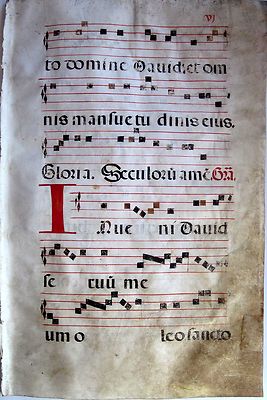 vj
to domine Dauid, et om
nis mansuetudinis eius.
Gloria. Seculorū amē. Gra.
INue ni Dauid
se ruū me
um o leo sancto